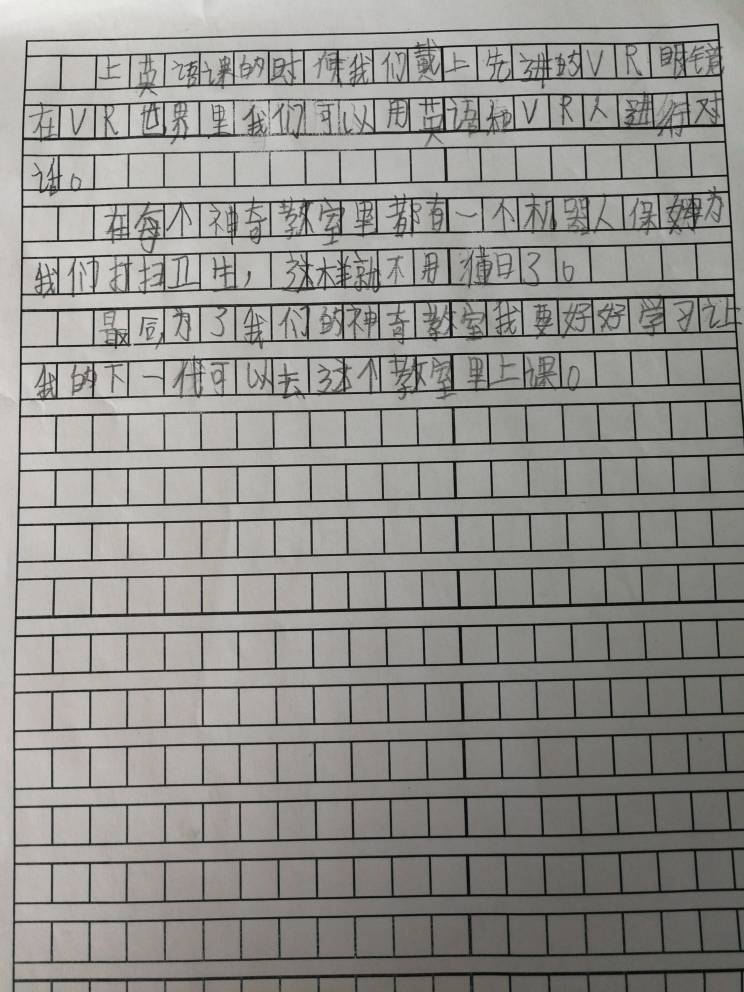 上英语课的时候我们戴上先进的VR眼镜
在VR世界里我们可以用英语和VR人进行对
话。
在每个神奇教室里都有一个机器人保姆为
我们打扫卫生，这样就不用值日了。
最后为了我们的神奇教室我要好好学习让
我的下一代可以去这个教室里上课。